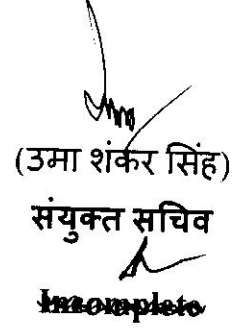 (उमा शंकर सिंह)
संयुक्त सचिव
Incomplete